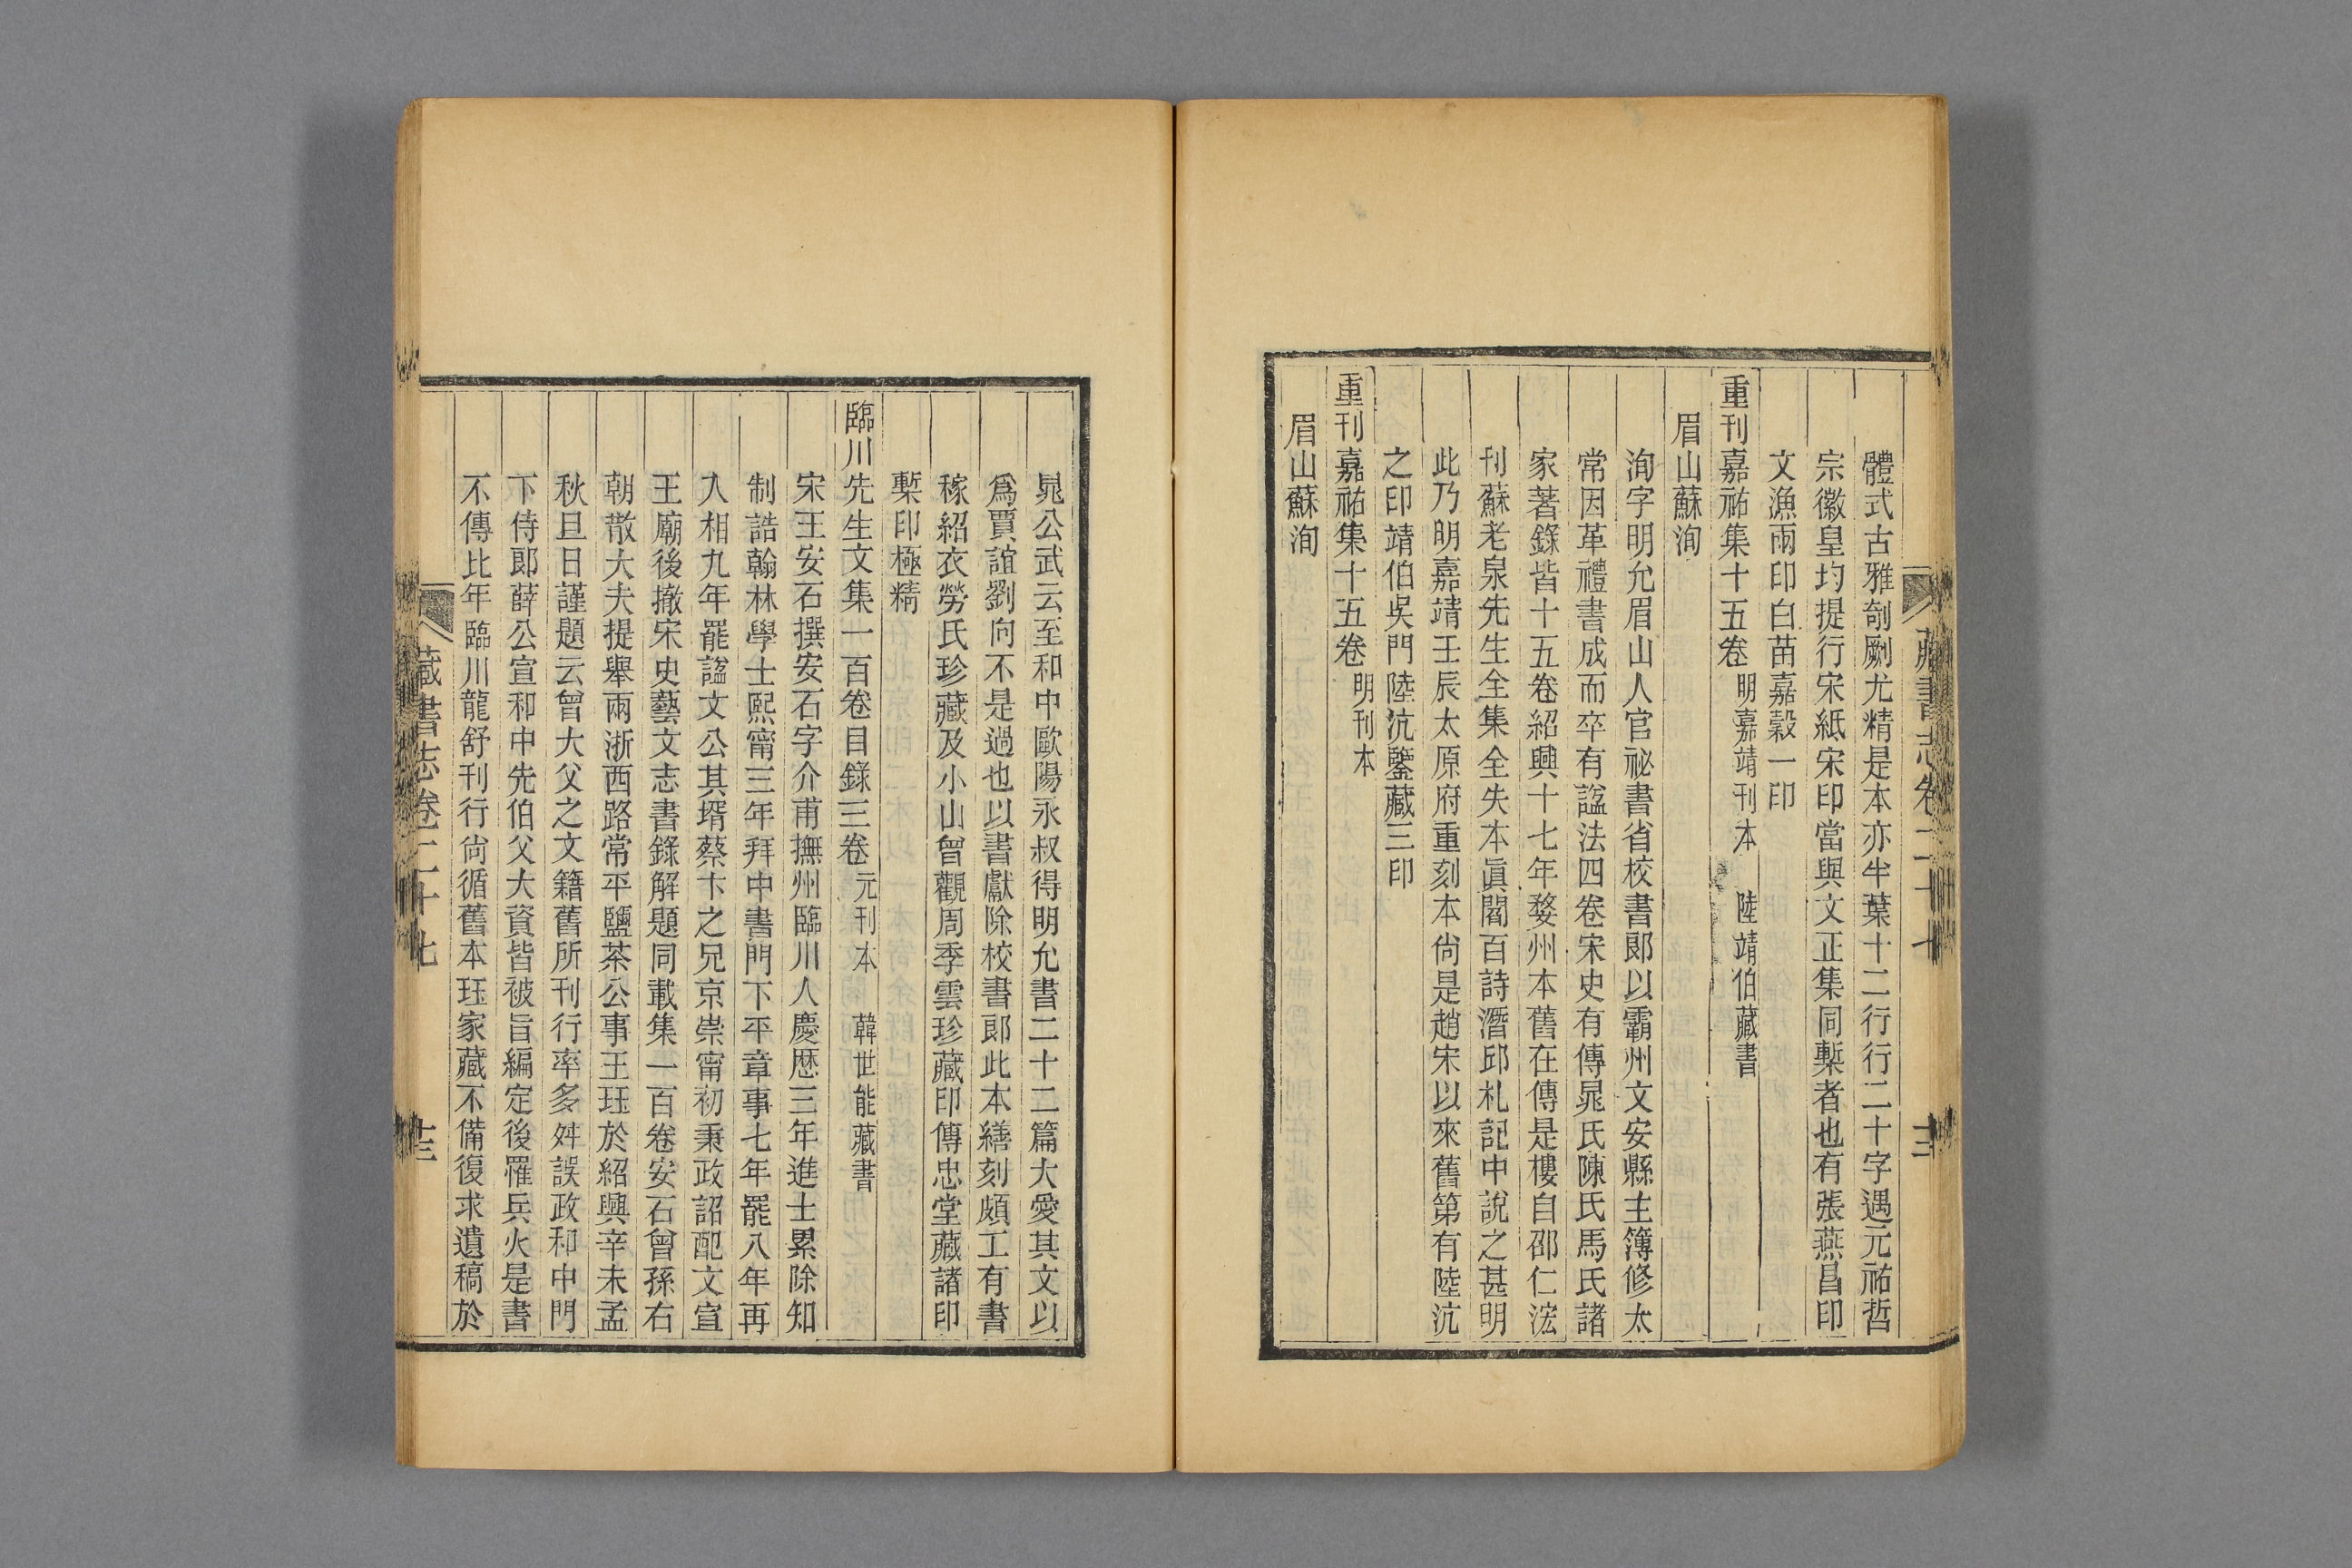 體式古雅剞劂尤精是本亦半葉十二行行二十字遇元祐哲
宗徽皇均提行宋紙宋印當與文正集同槧者也有張燕昌印
文漁兩印白苗嘉穀一印
重刊嘉祐集十五卷 明嘉靖刊本 陸靖伯藏書
眉山蘇洵
洵字明允眉山人官祕書省校書郎以霸州文安縣主簿修太
常因革禮書成而卒有諡法四卷宋史有傳晁氏陳氏馬氏諸
家著錄皆十五卷紹興十七年婺州本舊在傳是樓自邵仁浤
刊蘇老泉先生全集全失本眞閻百詩潛邱札記中說之甚明
此乃明嘉靖壬辰太原府重刻本尙是趙宋以來舊第有陸沆
之印靖伯吳門陸沆鑒藏三印
重刊嘉祐集十五卷 明刊本
眉山蘇洵
晁公武云至和中歐陽永叔得明允書二十二篇大愛其文以
爲賈誼劉向不是過也以書獻除校書郎此本繕刻頗工有書
稼紹衣勞氏珍藏及小山曾觀周季雲珍藏印傳忠堂藏諸印
槧印極精
臨川先生文集一百卷目錄三卷 元刊本 韓世能藏書
宋王安石撰安石字介甫撫州臨川人慶歷三年進士累除知
制誥翰林學士熙甯三年拜中書門下平章事七年罷八年再
入相九年罷諡文公其壻蔡卞之兄京崇甯初秉政詔配文宣
王廟後撤宋史藝文志書錄解題同載集一百卷安石曾孫右
朝散大夫提舉兩浙西路常平鹽茶公事王珏於紹興辛未孟
秋旦日謹題云曾大父之文籍舊所刊行率多舛誤政和中門
下侍郎薛公宣和中先伯父大資皆被旨編定後罹兵火是書
不傳比年臨川龍舒刊行尙循舊本珏家藏不備復求遺稿於
藏書志卷二十七 十三